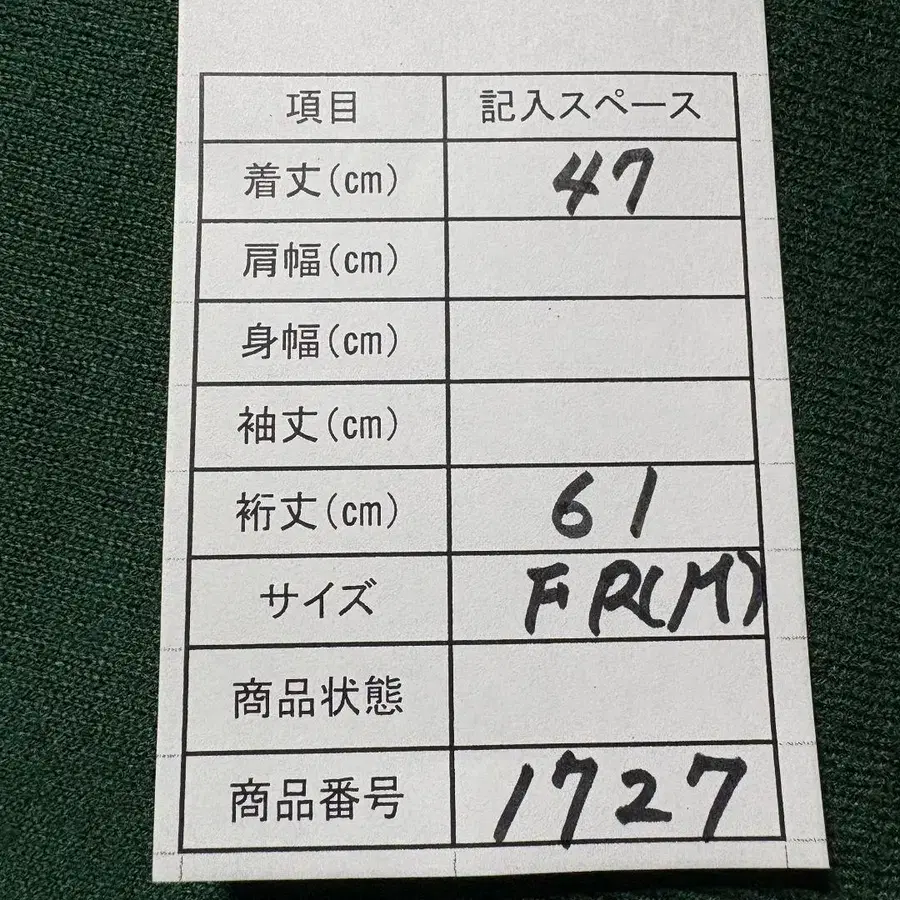 項目 記入スペース
着丈(cm) 47
肩幅(cm)
身幅(cm)
袖丈(cm)
裄丈(cm) 61
サイズ FR(M)
商品状態
商品番号 1727